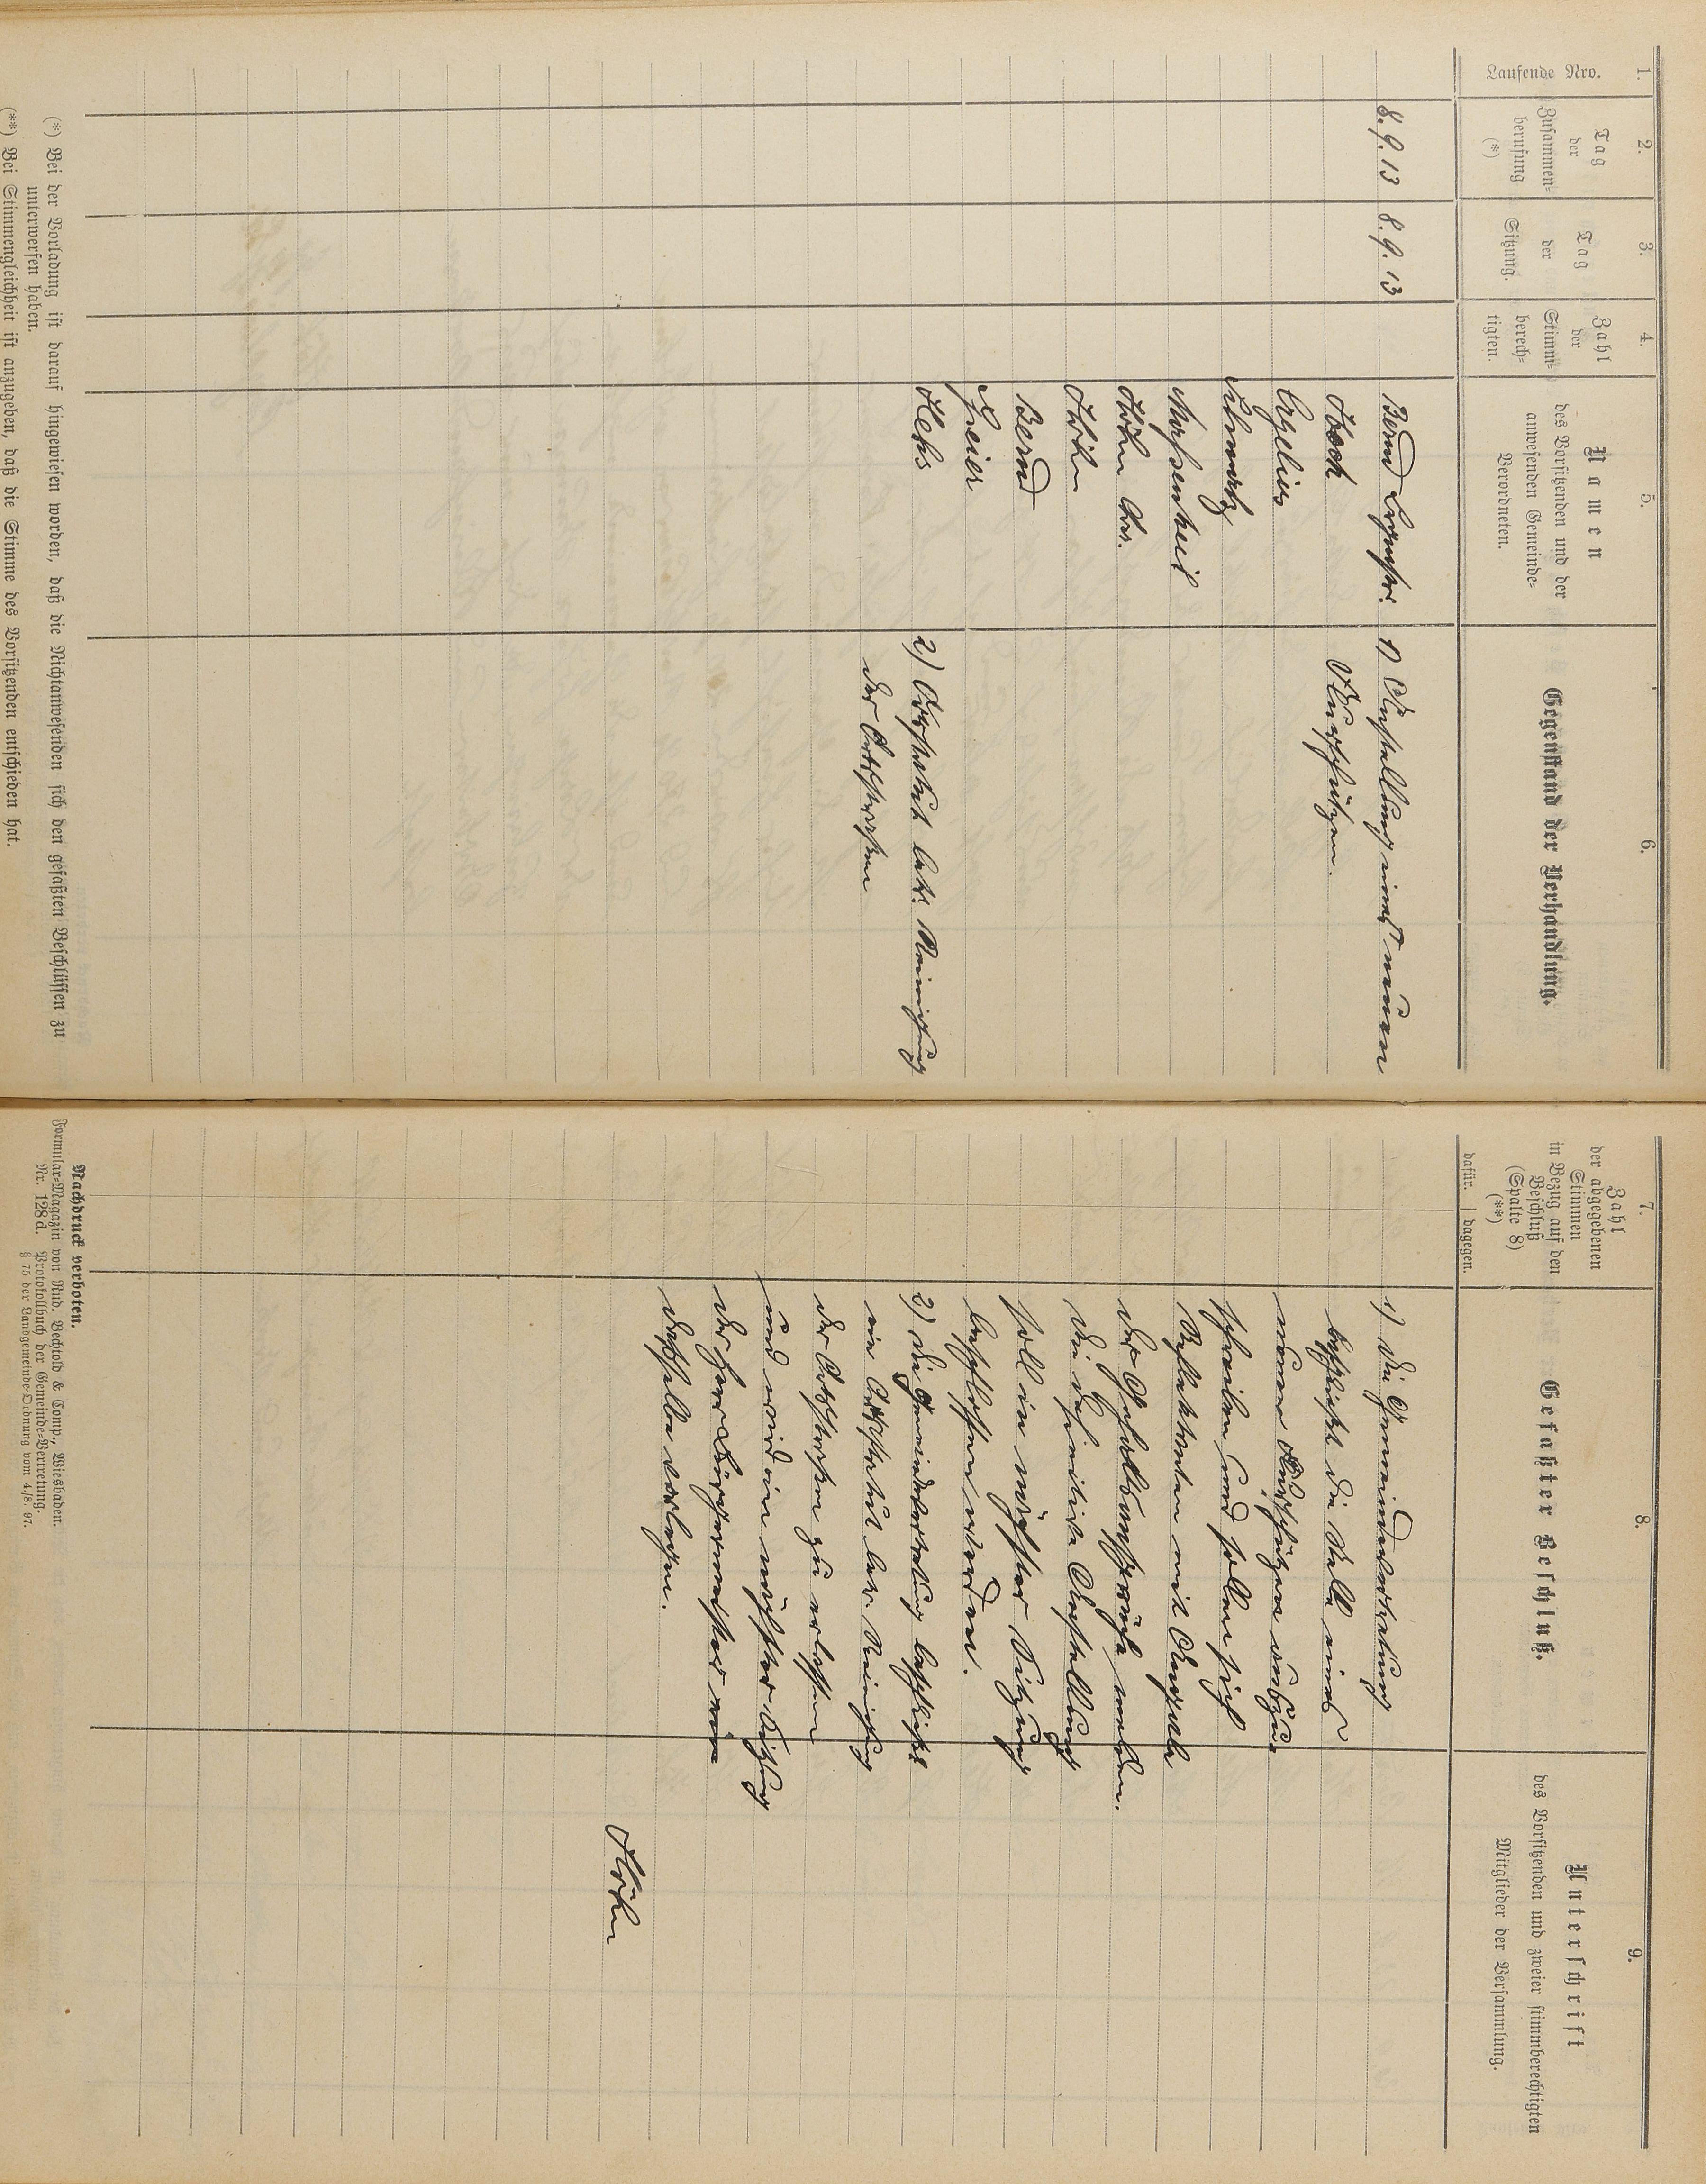 1.
Laufende Nro.
2.
Tag
der
Zusammen-
berufung
(*)
3.
Tag
der
Sitzung.
4.
Zahl
der
Stimm-
berech-
tigten.
5.
Namen
des Vorsitzenden und der
anwesenden Gemeinde-
Verordneten.
6.
Gegenstand der Verhandlung.
8.9.13
8.9.13
Bernd
Koch
Höhn
Höhn
Bernd
1) Anstellung eines neuen
Flurschützen.
2) Ortsstatut betr. Reinigung
der Ortsstraßen
(*) Bei der Vorladung ist darauf hingewiesen worden, daß die Nichtanwesenden sich den gefaßten Beschlüssen zu
unterwerfen haben.
(**) Bei Stimmengleichheit ist anzugeben, daß die Stimme des Vorsitzenden entschieden hat.
7.
Zahl
der abgegebenen
Stimmen
in Bezug auf den
Beschluß
(Spalte 8)
(**)
dafür. | dagegen.
8.
Gefaßter Beschluß.
9.
Unterschrift
des Vorsitzenden und zweier stimmberechtigten
Mitglieder der Versammlung.
1) Die Gemeindevertretung
beschließt die Stelle eines
neuen Flurschützen auszu-
schreiben und sollen sich
Reflektanten mit Angabe
der Gehaltsansprüche melden.
Die definitive Anstellung
soll in nächster Sitzung
beschlossen werden.
2) Die Gemeindevertretung beschließt
ein Ortsstatut betr. Reinigung
der Ortsstraßen zu erlassen
und wird in nächster Sitzung
der Herr Bürgermeister
dasselbe vorlegen.
Höhn
Nachdruck verboten.
Formular-Magazin von Rud. Bechtold & Comp., Wiesbaden.
Nr. 128d. Protokollbuch der Gemeinde-Vertretung.
§ 75 der Landgemeinde-Ordnung vom 4./8. 97.